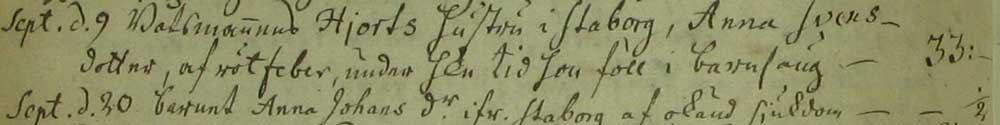 Sept. d. 9 Båtsmannens Hjorts hustru i Staborg, Anna Svens-
dotter, af rötfeber, under sin tid hon föll i barnsäng — 33:-
Sept. d. 20 barnet Anna Johans dr. ifr. Staborg af okänd sjukdom — — 1/2